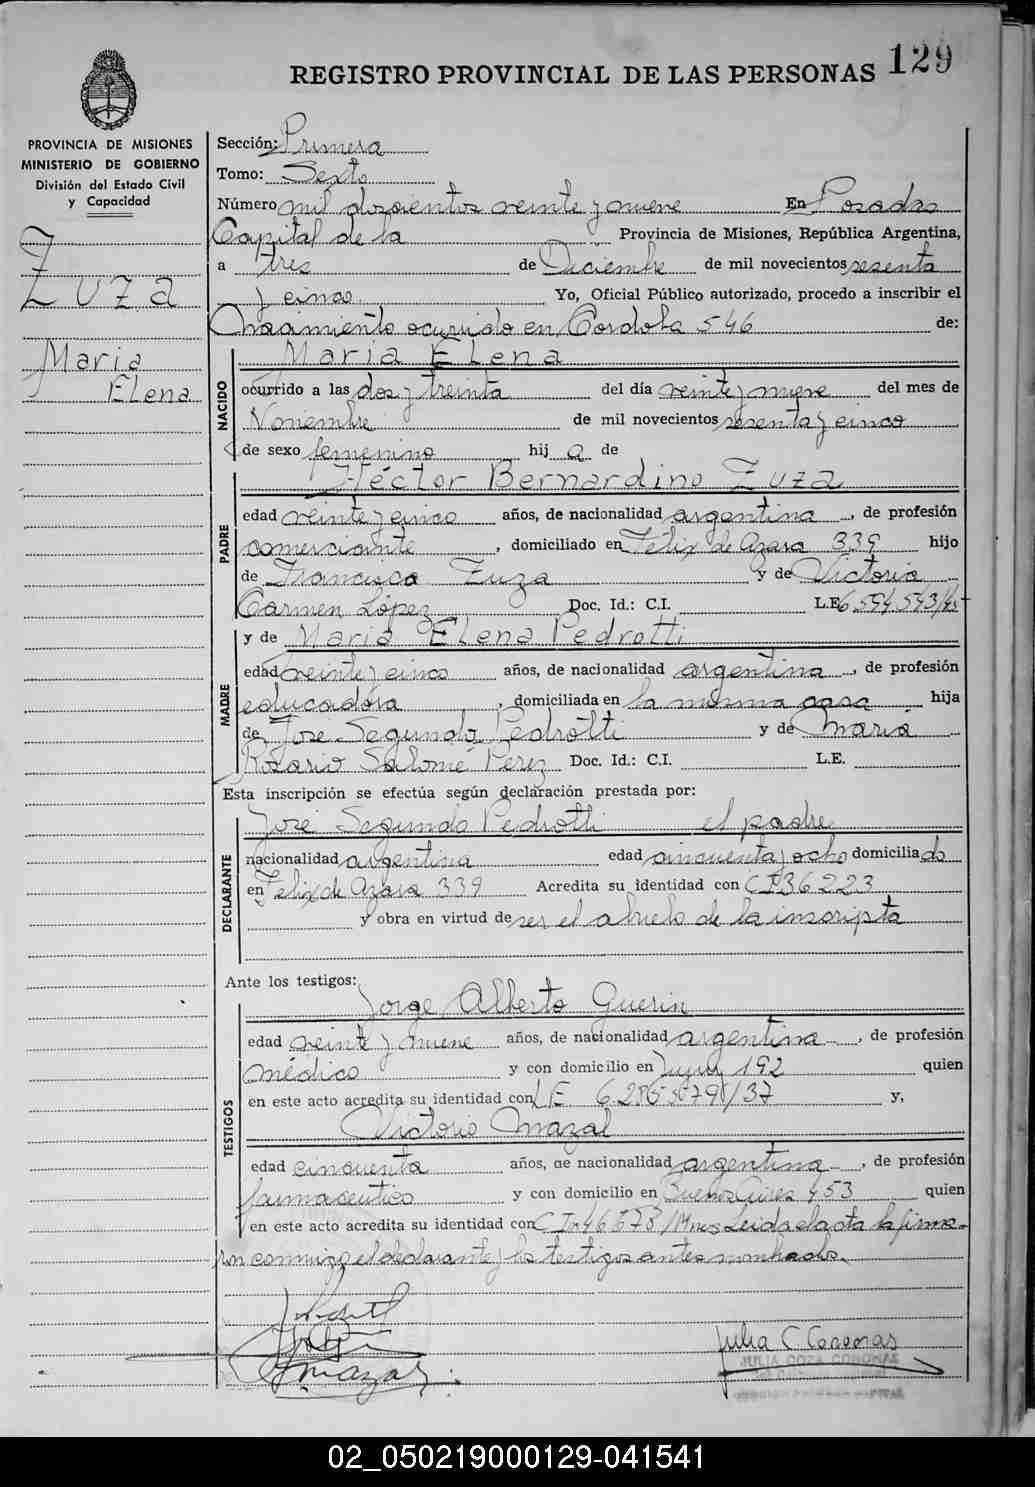 129
REGISTRO PROVINCIAL DE LAS PERSONAS
PROVINCIA DE MISIONES
MINISTERIO DE GOBIERNO
División del Estado Civil
y Capacidad
Zuza
María
Elena
Sección: Primera
Tomo: Sexto
Número mil doscientos veinte y nueve En Posadas
Capital de la Provincia de Misiones, República Argentina,
a tres de Diciembre de mil novecientos sesenta
y cinco Yo, Oficial Público autorizado, procedo a inscribir el
Nacimiento ocurrido en Cordoba 546 de:
NACIDO
María Elena
ocurrido a las dos y treinta del día veinte y nueve del mes de
Noviembre de mil novecientos sesenta y cinco
de sexo femenino hij a de
PADRE
Héctor Bernardino Zuza
edad veinte y cinco años, de nacionalidad argentina, de profesión
comerciante, domiciliado en Felix de Azara 339 hijo
de Francisco Zuza y de Victoria
Carmen López Doc. Id.: C.I. L.E.
MADRE
y de María Elena Pedrotti
edad veinte y cinco años, de nacionalidad argentina, de profesión
educadora, domiciliada en la misma casa hija
de Jose Segundo Pedrotti y de María
Rosario Salomé Perez Doc. Id.: C.I. L.E.
Esta inscripción se efectúa según declaración prestada por:
DECLARANTE
José Segundo Pedrotti el padre
nacionalidad argentina edad cincuenta y ocho domiciliado
en Felix de Azara 339 Acredita su identidad con CI 36223
y obra en virtud de ser el abuelo de la inscripta
Ante los testigos:
TESTIGOS
Jorge Alberto Guerin
edad veinte y nueve años, de nacionalidad argentina, de profesión
médico y con domicilio en Jujuy 192 quien
en este acto acredita su identidad con LE y,
Victorio Mazal
edad cincuenta años, de nacionalidad argentina, de profesión
farmaceutico y con domicilio en Buenos Aires 453 quien
en este acto acredita su identidad con Leida el acta la firma-
ron conmigo el declarante y los testigos antes nombrados.
Mazal
Julia C
02_050219000129-041541